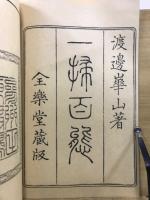 渡邉崋山著
一掃百態
全樂堂藏版